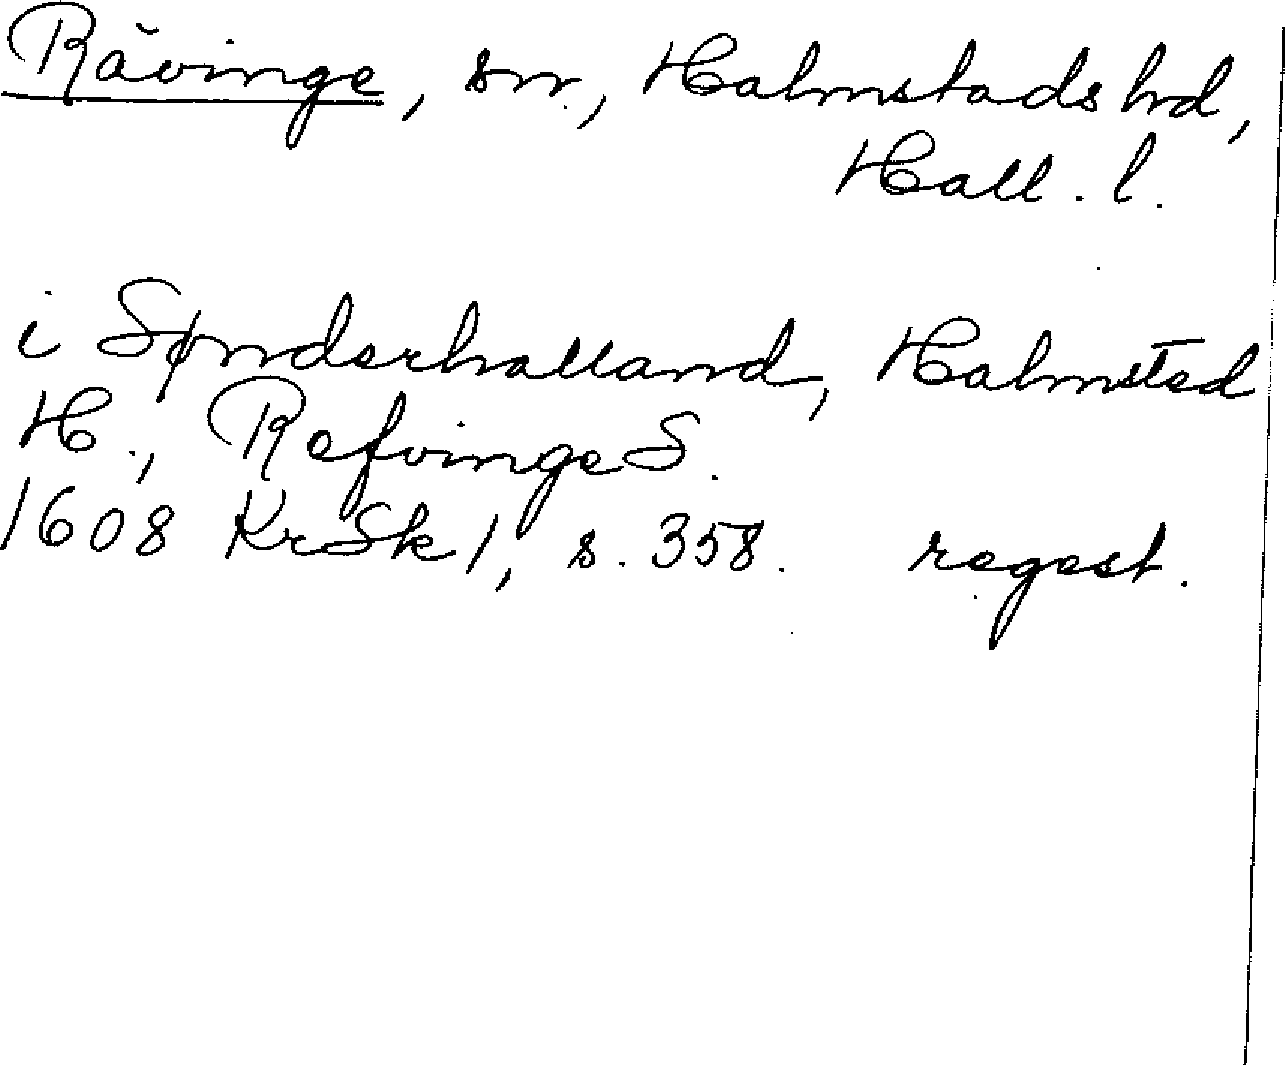 Rävinge, sn., Halmstads hd,
Hall. l.
i Sønderhalland, Halmsted
H., Refvinge S.
1608 KrSk 1, s. 358. regest.